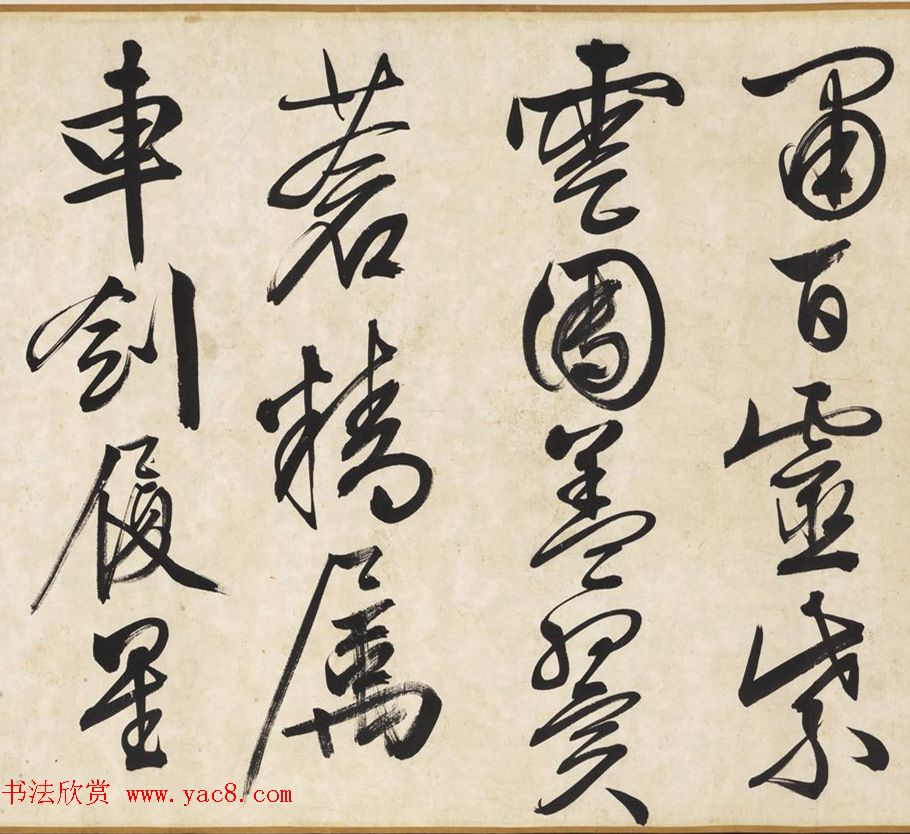 百靈紫
雲團蓋翼
蒼精屬
車劍履星
书法欣赏 www.yac8.com